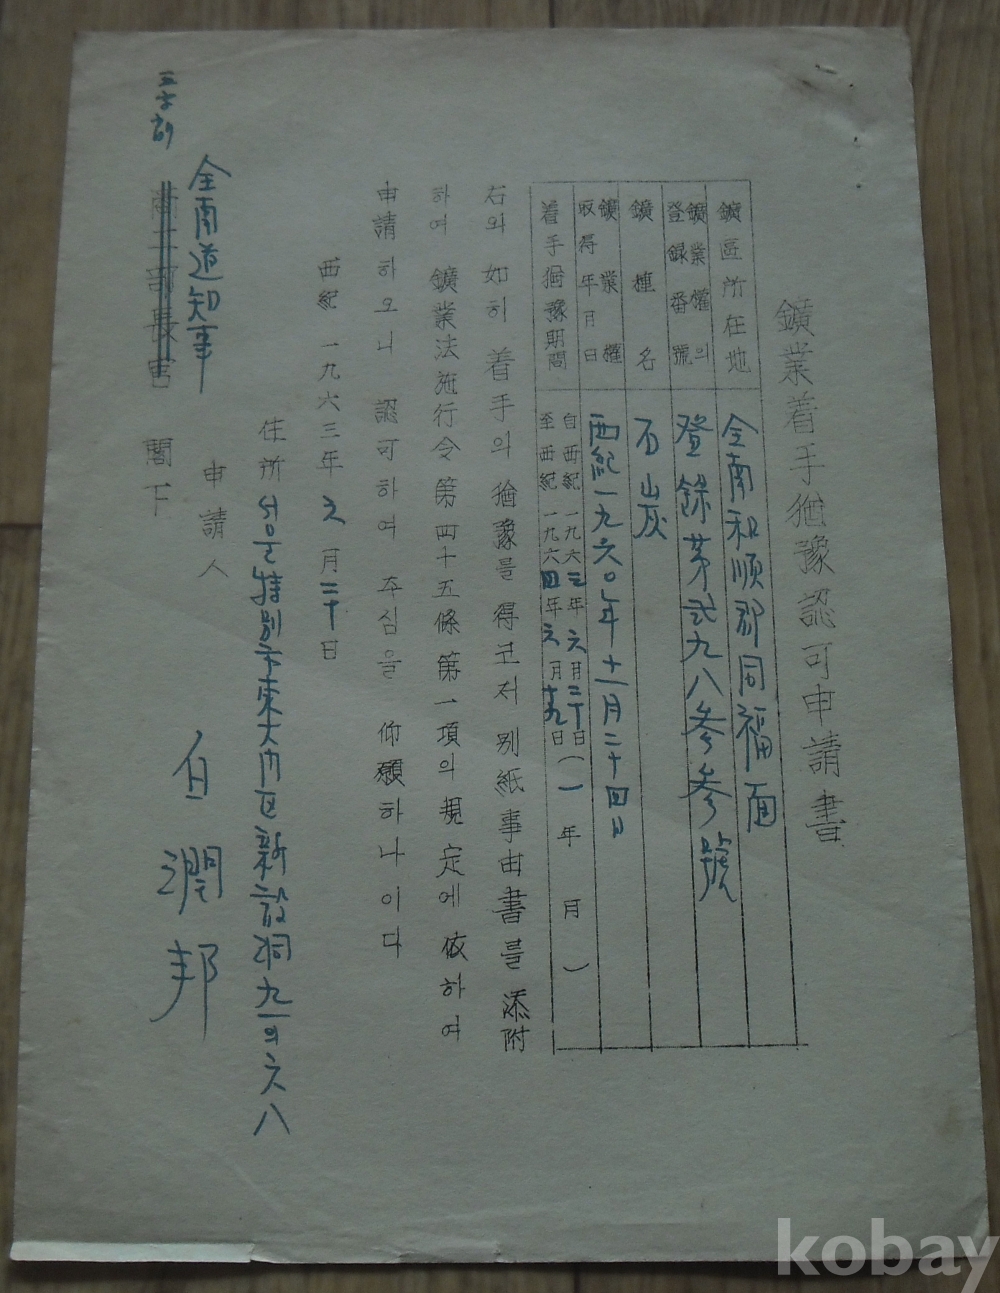 鑛業着手猶豫認可申請書
鑛區所在地 全南和順郡同福面
鑛業權의登錄番號 登錄第弐九八参参號
鑛種名 石山灰
鑛業權取得年月日 西紀一九六〇年十一月二十四日
着手猶豫期間 自西紀一九六三年六月二十日
至西紀一九六四年六月十九日 (一年 月)
右와 如히 着手의 猶豫를 得코저 別紙事由書를 添附
하여 鑛業法施行令 第四十五條 第一項의 規定에 依하여
申請하오니 認可하여 주심을 仰願하나이다
西紀 一九六三年 六月 二十日
住所 서울特別市東大門區新設洞九一의六八
申請人 白潤邦
全南道知事
商工部長官 閣下